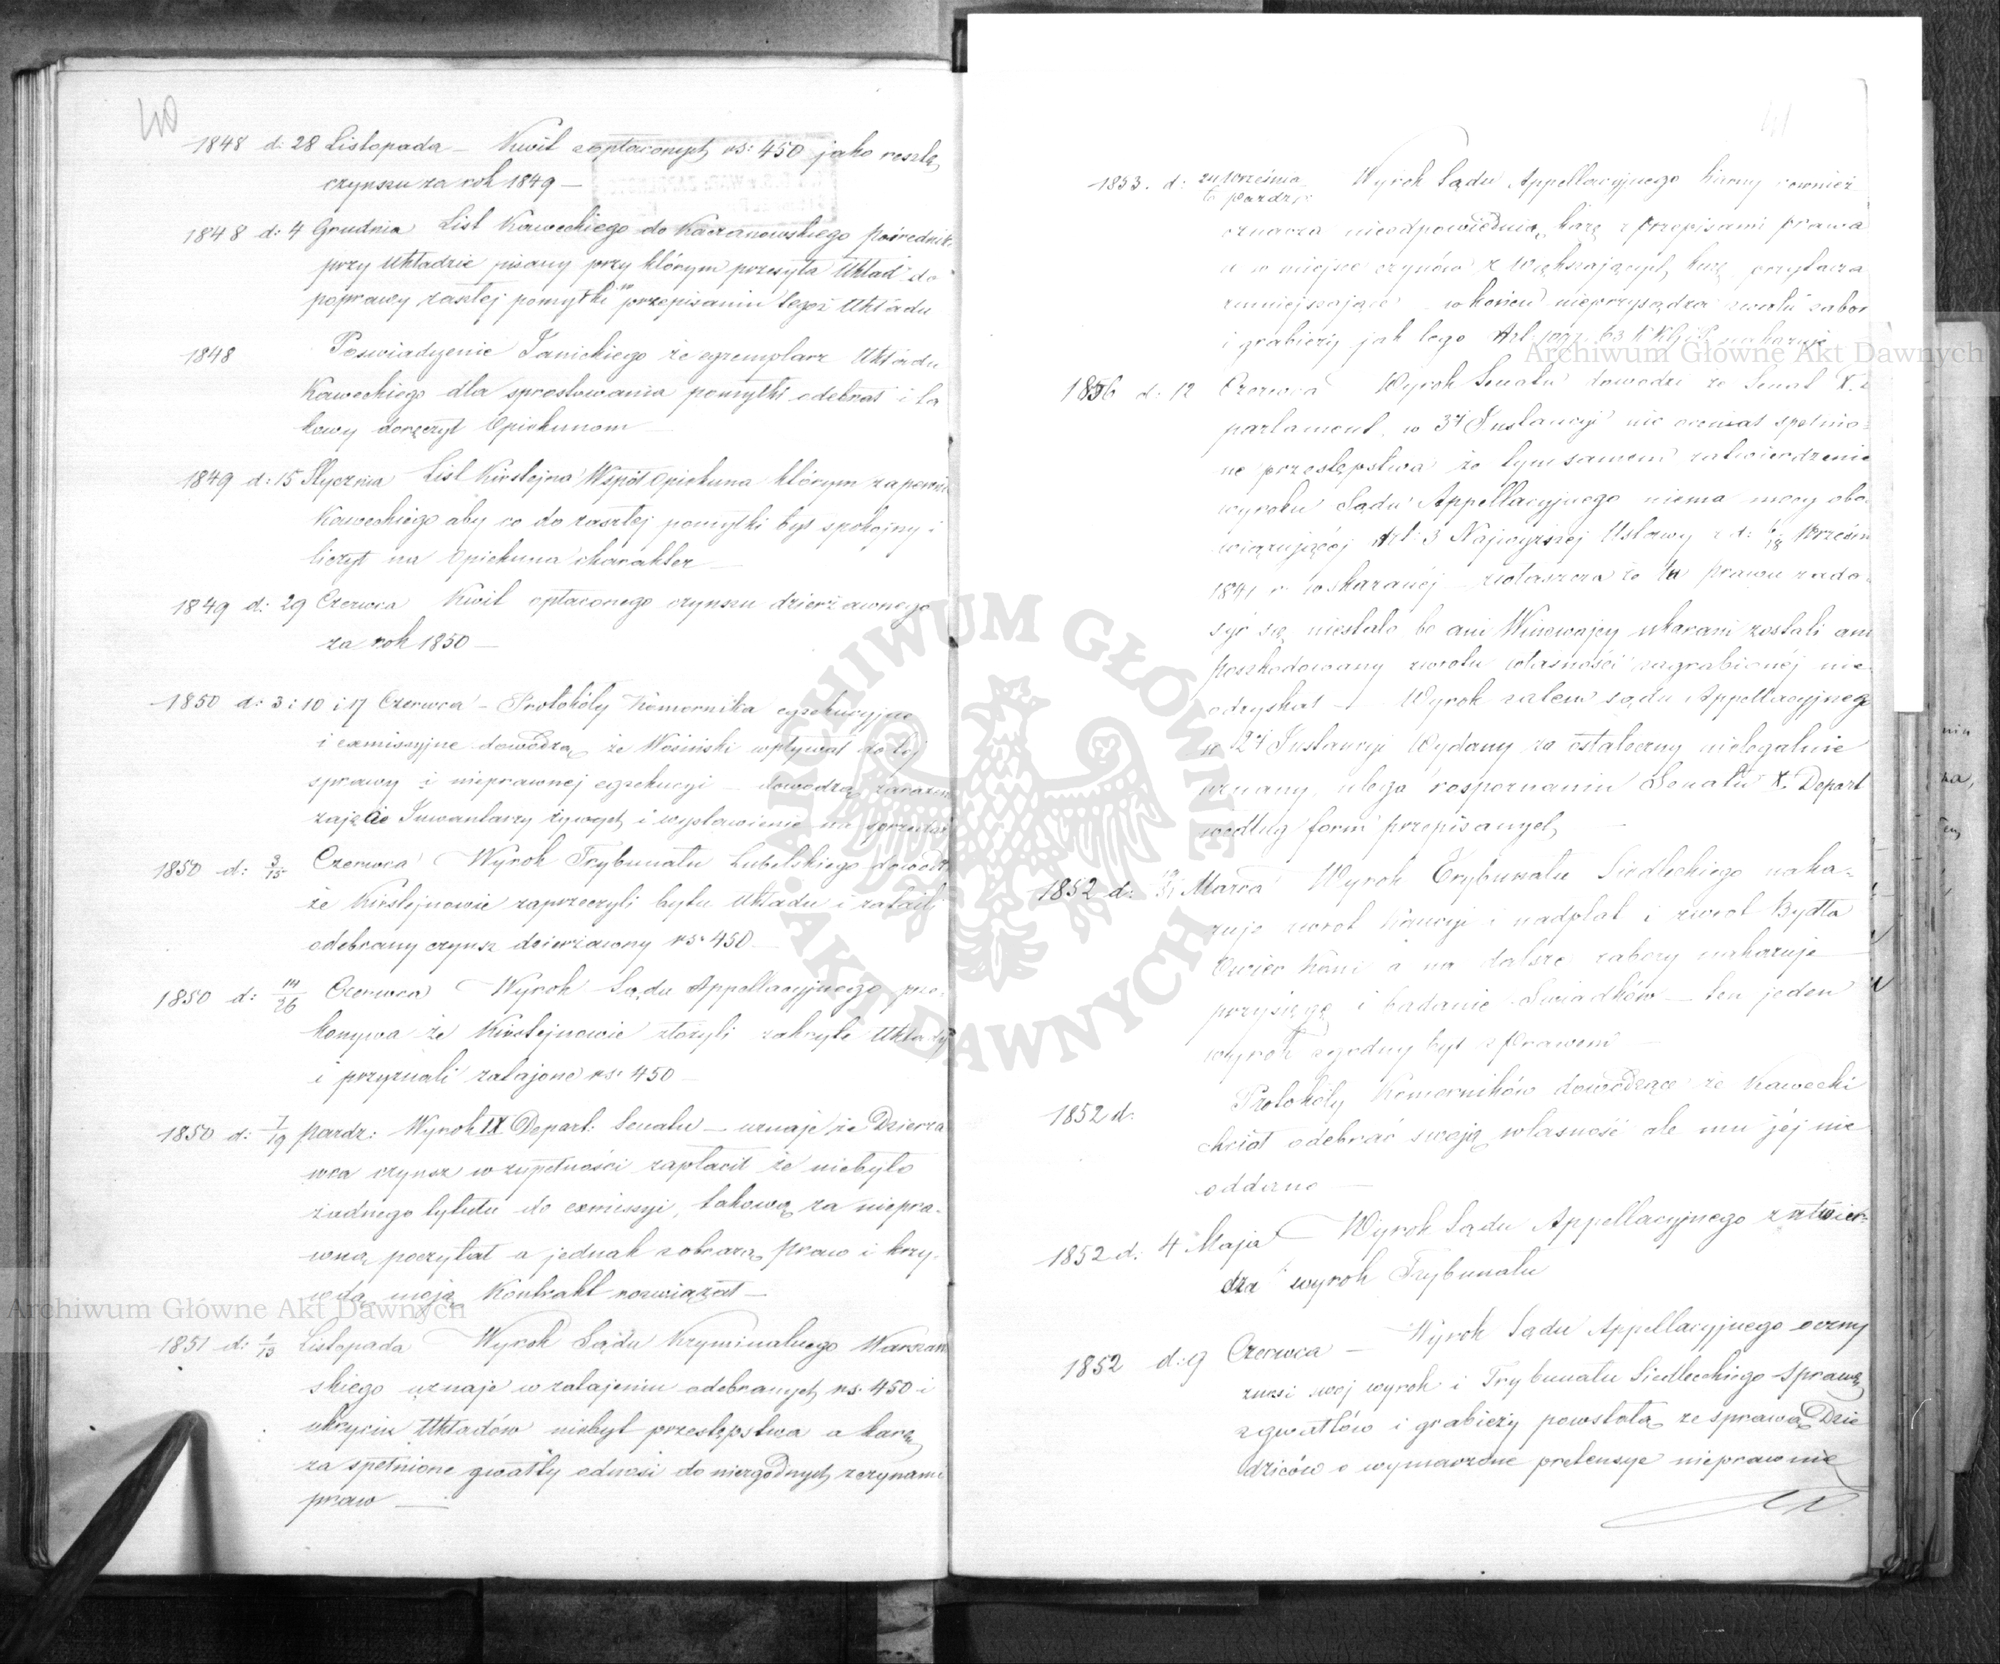 40
1848 d: 28 Listopada – Kwit zapłaconych rs: 450 jako resztę
czynszu za rok 1849 –
1848 d: 4 Grudnia List Kaweckiego do Kaczanowskiego pośrednik
przy Układzie pisany przy którym przesyła Układ do
poprawy zaszłej pomyłki w przepisaniu tegoż Układu
1848 Poswiadczenie Janickiego że egzemplarz Układu
Kaweckiego dla sprostowania pomyłki odebrał i ta
kowy doręczył Opiekunom
1849 d: 15 Stycznia List Kirsztejna Współ Opiekuna którym zapewnia
Kaweckiego aby co do zaszłej pomyłki był spokojny i
liczył na Opiekuna charakter –
1849 d: 29 Czerwca Kwit opłaconego czynszu dzierżawnego
za rok 1850 –
1850 d: 3 i 10 i 17 Czerwca – Protokóły Komornika egzekucyjne
i exmissyjne dowodzą że Wośiński wpływał do tej
sprawy i nieprawnej egzekucyi – dowodzą
zajęcie Inwentarzy żywych i wystawienie na sprzedaż
1850 d: 3/15 Czerwca Wyrok Trybunału Lubelskiego dowodzi
że Kirsztejnowie zaprzeczyli bytu Układu i zataili
odebrany czynsz dzierżawny rs: 450 –
1850 d: 14/26 Czerwca Wyrok Sądu Appellacyjnego prze-
konywa że Kirsztejnowie złożyli zakryte Układy
i przyznali zatajone rs: 450 –
1850 d: 7/19 pazdz: Wyrok IX Depart: Senatu – uznaje że Dzierża
wca czynsz w zupełności zapłacił że niebyło
żadnego tytułu do exmissyi, takową za niepra-
wną poczytał a jednak z obrazą praw i krzy-
wdą moją Kontrakt rozwiązał –
1851 d: 1/13 Listopada Wyrok Sądu Kryminalnego Warszaw
skiego uznaje w zatajeniu odebranych rs. 450 i
ukryciu Układów niebył przestępstwa a karę
za spełnione gwałty odnosi do niezgodnych z czynami
praw –
41
1853. d: 24 Września
6 Pazdz: Wyrok Sądu Appellacyjnego karny rownież
oznacza nieodpowiednią karę z przepisami prawa
a w miejsce czynów zwiększających karę przytacza
zmniejszające w końcu nieprzysądza zwrotu zabor
i grabieży jak tego Art nakazuje
1856 d: 12 Czerwca Wyrok Senatu dowodzi że Senat X. z
parlament. w 3éj Instancyi nie oceniał spełnio-
ne przestępstwa że tym samem zatwierdzenie
wyroku Sądu Appellacyjnego niema mocy obo-
wiązującéj Art: 3 Najwyższej Ustawy z d: 6/18 Wrześni
1841 r wskazanéj – zwłaszcza że tu prawu zado-
syć się niestało bo ani Winowajcy ukarani zostali ani
poszkodowany zwrotu własności zagrabionéj nie-
odzyskał – Wyrok zatem sądu Appellacyjnego
w 2éj Instancyi Wydany za ostateczny nielegalnie
uznany, ulega rozpoznaniu Senatu X. Depart
według form przepisanych –
1852 d: 19/31 Marca Wyrok Trybunału Siedleckiego naka-
zuje zwrot Kaucyi i nadpłat i zwrot Bydła
Owiec Koni a na dalsze zabory nakazuje
przysięgę i badanie Swiadków – ten jeden
wyrok zgodny był z prawem –
1852 d. Protokóły Komorników dowodzące że Kawecki
chciał odebrać swoją własność ale mu jéj nie
oddano –
1852 d: 4 Maja – Wyrok Sądu Appellacyjnego zatwier-
dza wyrok Trybunału
1852 d: 9 Czerwca – Wyrok Sądu Appellacyjnego oczny
znosi swój wyrok i Trybunału Siedleckiego sprawę
z gwałtów i grabieży powstałą ze sprawą Dzie
dziców o wymarzone pretensye nieprawnie
Archiwum Główne Akt Dawnych
Archiwum Główne Akt Dawnych
ARCHIWUM GŁÓWNE
AKT DAWNYCH